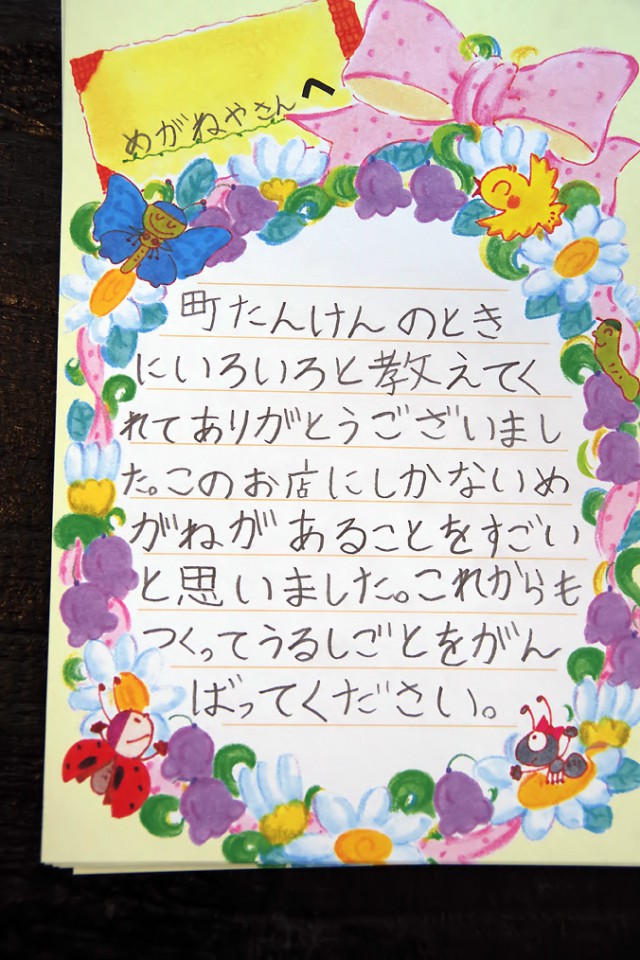 めがねやさんへ
町たんけんのとき
にいろいろと教えてく
れてありがとうございまし
た。このお店にしかないめ
がねがあることをすごい
と思いました。これからも
つくってうるしごとをがん
ばってください。